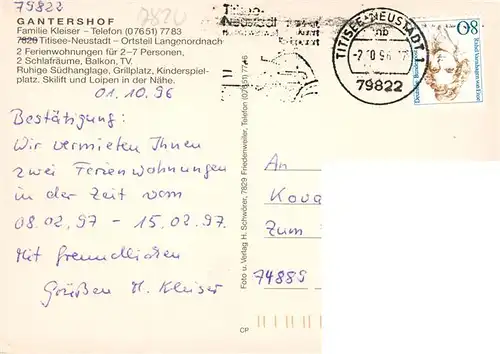 79822
7820
GANTERSHOF
Familie Kleiser – Telefon (07651) 7783
7820 Titisee-Neustadt – Ortsteil Langenordnach
2 Ferienwohnungen für 2–7 Personen,
2 Schlafräume, Balkon, TV.
Ruhige Südhanglage, Grillplatz, Kinderspiel-
platz. Skilift und Loipen in der Nähe.
01.10.96
Bestätigung:
Wir vermieten Ihnen
zwei Ferienwohnungen
in der Zeit vom
08.02.97 - 15.02.97.
Mit freundlichen
Grüßen H. Kleiser
Foto u. Verlag H. Schwörer, 7829 Friedenweiler, Telefon (07651)
CP
Titisee-
Neustadt
TITISEE-NEUSTADT 1
nb
79822
80
Rahel Varnhagen von Ense
An
Kova
Zum
74885